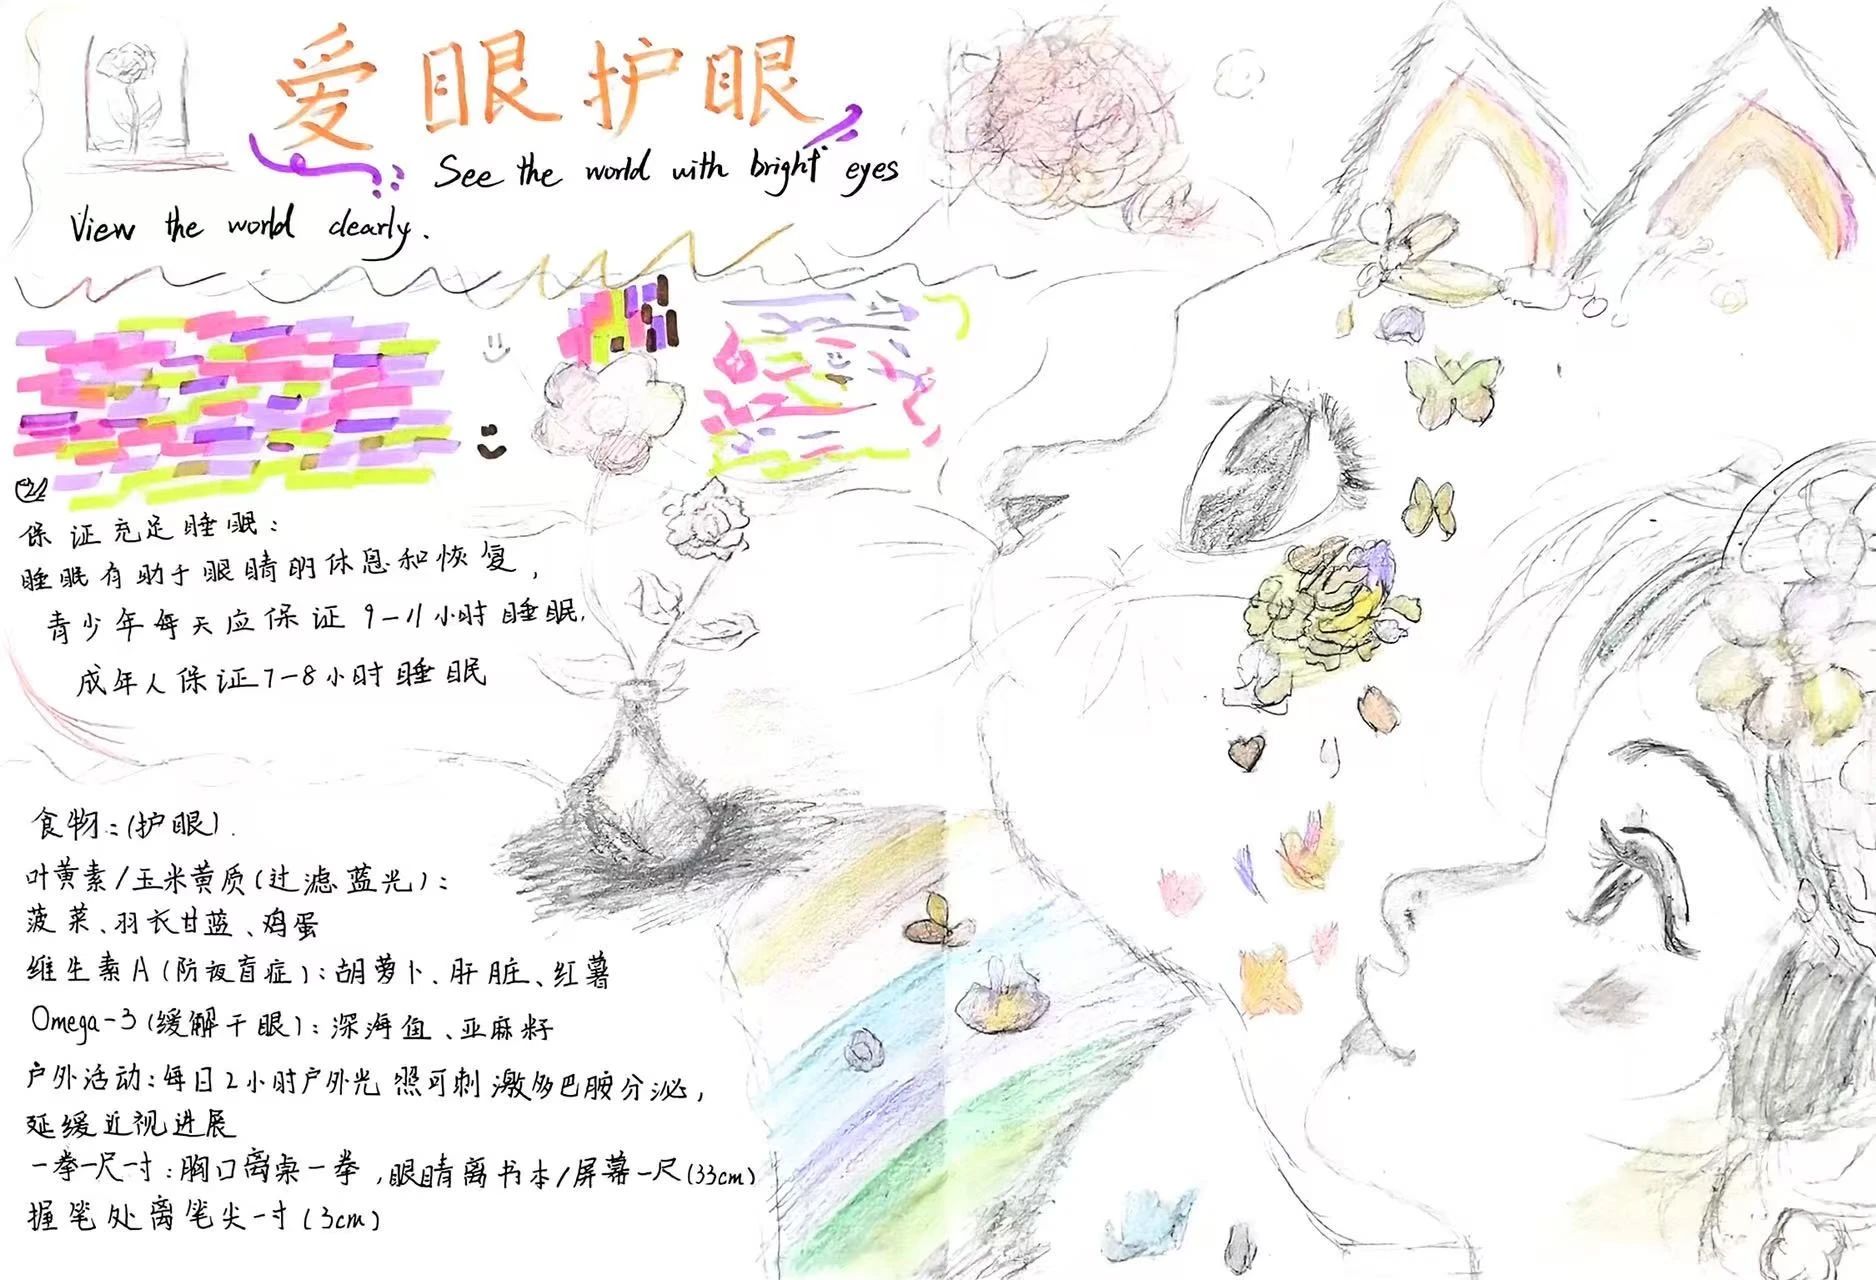 爱眼护眼
See the world with bright eyes
View the world clearly.
保证充足睡眠:
睡眠有助于眼睛的休息和恢复,
青少年每天应保证9-11小时睡眠.
成年人保证7-8小时睡眠
食物:(护眼).
叶黄素/玉米黄质(过滤蓝光):
菠菜、羽衣甘蓝、鸡蛋
维生素A(防夜盲症):胡萝卜、肝脏、红薯
Omega-3(缓解干眼):深海鱼、亚麻籽
户外活动:每日2小时户外光照可刺激多巴胺分泌,
延缓近视进展
一拳一尺一寸:胸口离桌一拳,眼睛离书本/屏幕一尺(33cm)
握笔处离笔尖一寸(3cm)